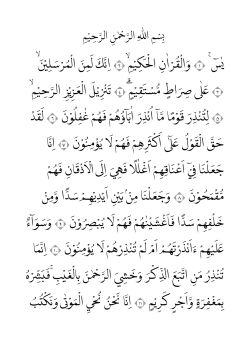 بِسْمِ اللّٰهِ الرَّحْمٰنِ الرَّحِيْمِ
يٰسٓ ۚ ۝١ وَالْقُرْاٰنِ الْحَكِيْمِۙ ۝٢ اِنَّكَ لَمِنَ الْمُرْسَلِيْنَۙ
۝٣ عَلٰى صِرَاطٍ مُّسْتَقِيْمٍۗ ۝٤ تَنْزِيْلَ الْعَزِيْزِ الرَّحِيْمِۙ
۝٥ لِتُنْذِرَ قَوْمًا مَّآ اُنْذِرَ اٰبَاۤؤُهُمْ فَهُمْ غٰفِلُوْنَ ۝٦ لَقَدْ
حَقَّ الْقَوْلُ عَلٰٓى اَكْثَرِهِمْ فَهُمْ لَا يُؤْمِنُوْنَ ۝٧ اِنَّا
جَعَلْنَا فِيْٓ اَعْنَاقِهِمْ اَغْلٰلًا فَهِيَ اِلَى الْاَذْقَانِ فَهُمْ
مُّقْمَحُوْنَ ۝٨ وَجَعَلْنَا مِنْۢ بَيْنِ اَيْدِيْهِمْ سَدًّا وَّمِنْ
خَلْفِهِمْ سَدًّا فَاَغْشَيْنٰهُمْ فَهُمْ لَا يُبْصِرُوْنَ ۝٩ وَسَوَاۤءٌ
عَلَيْهِمْ ءَاَنْذَرْتَهُمْ اَمْ لَمْ تُنْذِرْهُمْ لَا يُؤْمِنُوْنَ ۝١٠ اِنَّمَا
تُنْذِرُ مَنِ اتَّبَعَ الذِّكْرَ وَخَشِيَ الرَّحْمٰنَ بِالْغَيْبِۚ فَبَشِّرْهُ
بِمَغْفِرَةٍ وَّاَجْرٍ كَرِيْمٍ ۝١١ اِنَّا نَحْنُ نُحْيِ الْمَوْتٰى وَنَكْتُبُ